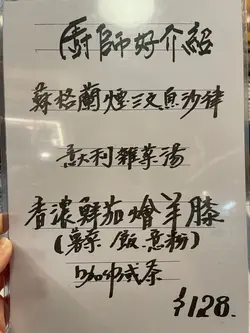 廚師好介紹
蘇格蘭煙三文魚沙律
意大利雜菜湯
香濃鮮茄燴羊膝
(薯菜/飯/意粉)
咖啡或茶
$128.